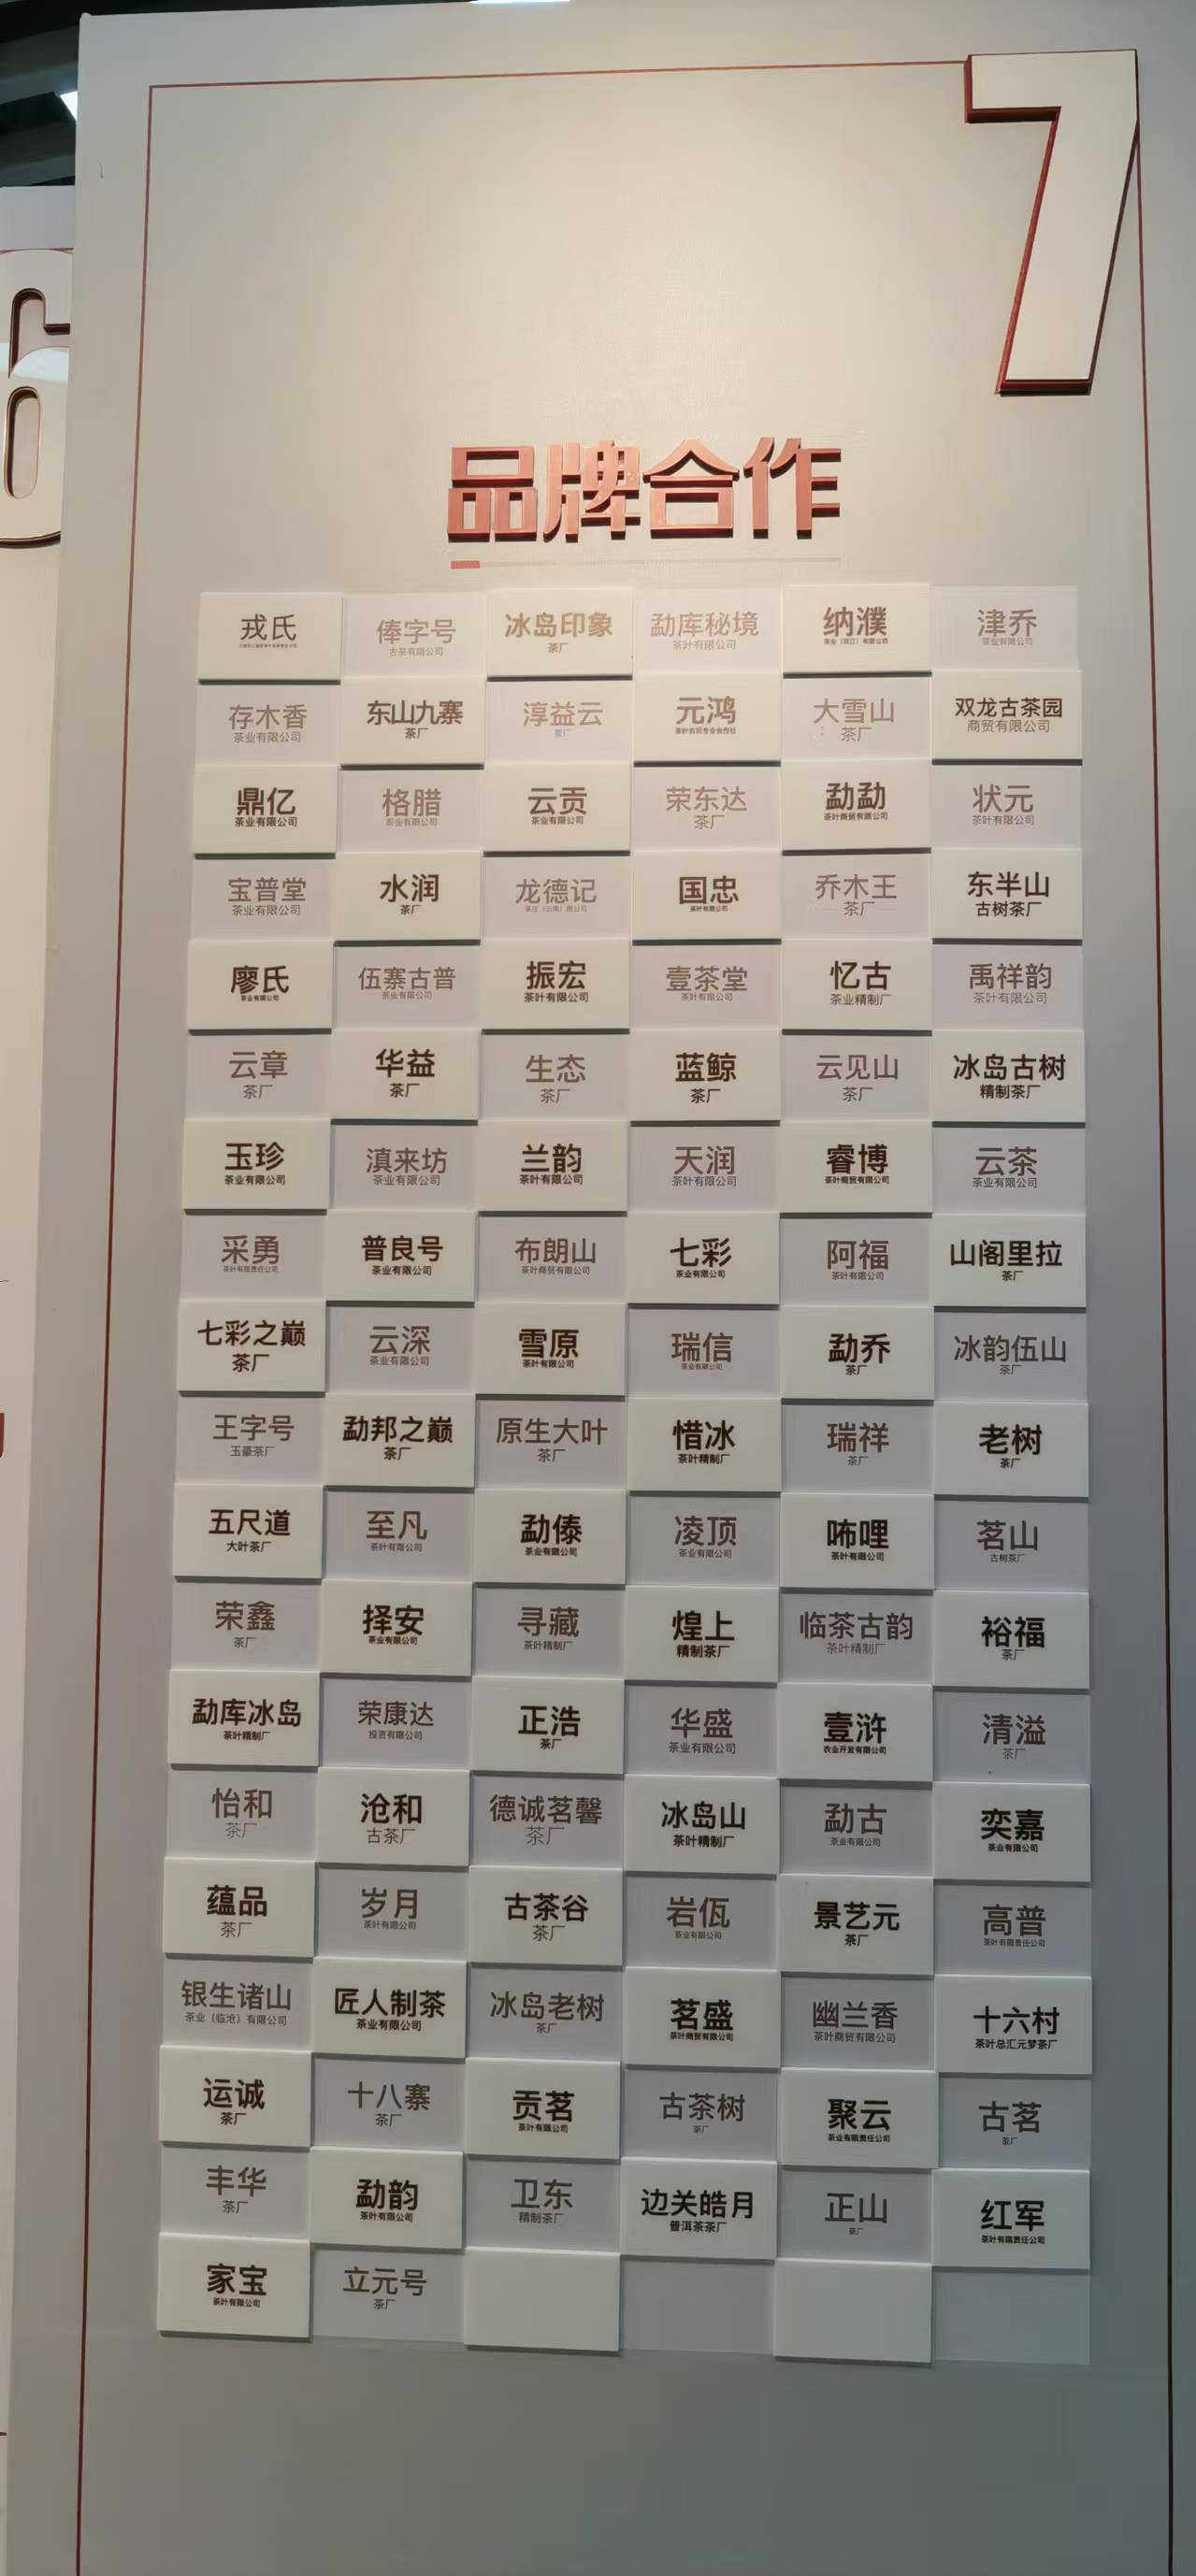 7
6
品牌合作
戎氏
俸字号
古茶有限公司
冰岛印象
茶厂
勐库秘境
茶叶有限公司
纳濮
津乔
茶业有限公司
存木香
茶业有限公司
东山九寨
茶厂
淳益云
茶厂
元鸿
大雪山
茶厂
双龙古茶园
商贸有限公司
鼎亿
茶业有限公司
格腊
茶业有限公司
云贡
茶业有限公司
荣东达
茶厂
勐勐
茶叶商贸有限公司
状元
茶叶有限公司
宝普堂
茶业有限公司
水润
茶厂
龙德记
国忠
茶叶有限公司
乔木王
茶厂
东半山
古树茶厂
廖氏
茶业有限公司
伍寨古普
茶业有限公司
振宏
茶叶有限公司
壹茶堂
茶叶有限公司
忆古
茶业精制厂
禹祥韵
茶叶有限公司
云章
茶厂
华益
茶厂
生态
茶厂
蓝鲸
茶厂
云见山
茶厂
冰岛古树
精制茶厂
玉珍
茶业有限公司
滇来坊
茶业有限公司
兰韵
茶叶有限公司
天润
茶叶有限公司
睿博
茶叶商贸有限公司
云茶
茶业有限公司
采勇
茶叶有限责任公司
普良号
茶业有限公司
布朗山
茶叶商贸有限公司
七彩
茶业有限公司
阿福
茶叶有限公司
山阁里拉
茶厂
七彩之巅
茶厂
云深
茶业有限公司
雪原
茶叶有限公司
瑞信
茶业有限公司
勐乔
茶厂
冰韵伍山
茶厂
王字号
玉豪茶厂
勐邦之巅
茶厂
原生大叶
茶厂
惜冰
茶叶精制厂
瑞祥
茶厂
老树
茶厂
五尺道
大叶茶厂
至凡
茶叶有限公司
勐傣
茶业有限公司
凌顶
茶业有限公司
咘哩
茶叶有限公司
茗山
古树茶厂
荣鑫
茶厂
择安
茶业有限公司
寻藏
茶叶精制厂
煌上
精制茶厂
临茶古韵
茶叶精制厂
裕福
茶厂
勐库冰岛
茶叶精制厂
荣康达
投资有限公司
正浩
茶厂
华盛
茶业有限公司
壹浒
农业开发有限公司
清溢
茶厂
怡和
茶厂
沧和
古茶厂
德诚茗馨
茶厂
冰岛山
茶叶精制厂
勐古
茶业有限公司
奕嘉
茶业有限公司
蕴品
茶厂
岁月
茶叶有限公司
古茶谷
茶厂
岩佤
茶业有限公司
景艺元
茶厂
高普
茶叶有限责任公司
银生诸山
茶业（临沧）有限公司
匠人制茶
茶业有限公司
冰岛老树
茶厂
茗盛
茶叶商贸有限公司
幽兰香
茶叶商贸有限公司
十六村
茶叶总汇元梦茶厂
运诚
茶厂
十八寨
茶厂
贡茗
茶叶有限公司
古茶树
茶厂
聚云
茶业有限责任公司
古茗
茶厂
丰华
茶厂
勐韵
茶叶有限公司
卫东
精制茶厂
边关皓月
普洱茶茶厂
正山
茶厂
红军
茶叶有限责任公司
家宝
茶叶有限公司
立元号
茶厂